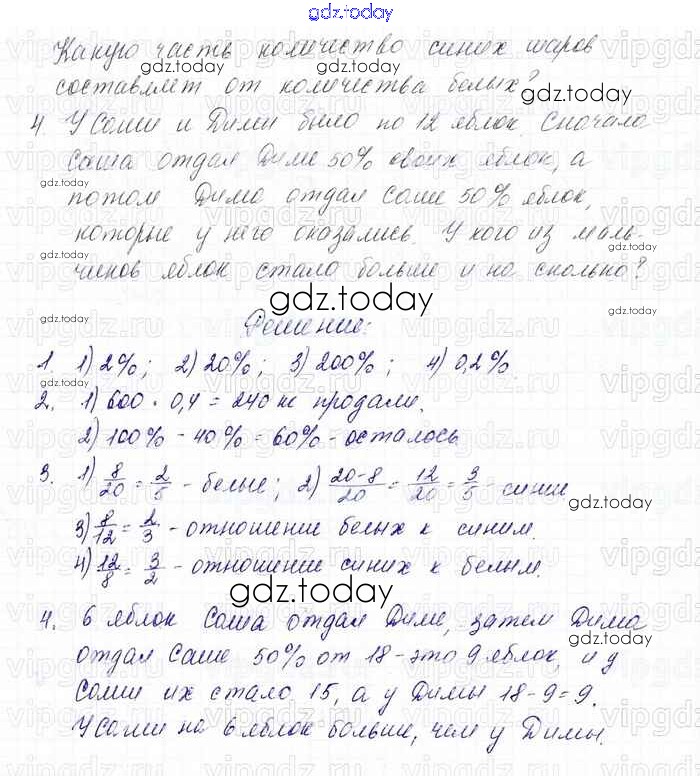 gdz.today
Какую часть количество синих шаров
составляет от количества белых?
4. У Саши и Димы было по 12 яблок. Сначала
Саша отдал Диме 50% своих яблок, а
потом Дима отдал Саше 50% яблок,
которые у него оказались. У кого из маль-
чиков яблок стало больше и на сколько?
gdz.today
Решение:
1. 1) 2%; 2) 20%; 3) 200%; 4) 0,2%.
2. 1) 600 · 0,4 = 240 кг продали.
2) 100% - 40% = 60% - осталось
3. 1) 8/20 = 2/5 - белые; 2) 20-8/20 = 12/20 = 3/5 - синие
3) 8/12 = 2/3 - отношение белых к синим.
4) 12/8 = 3/2 - отношение синих к белым.
gdz.today
4. 6 яблок Саша отдал Диме, затем Дима
отдал Саше 50% от 18 - это 9 яблок, и у
Саши их стало 15, а у Димы 18-9=9.
У Саши на 6 яблок больше, чем у Димы.